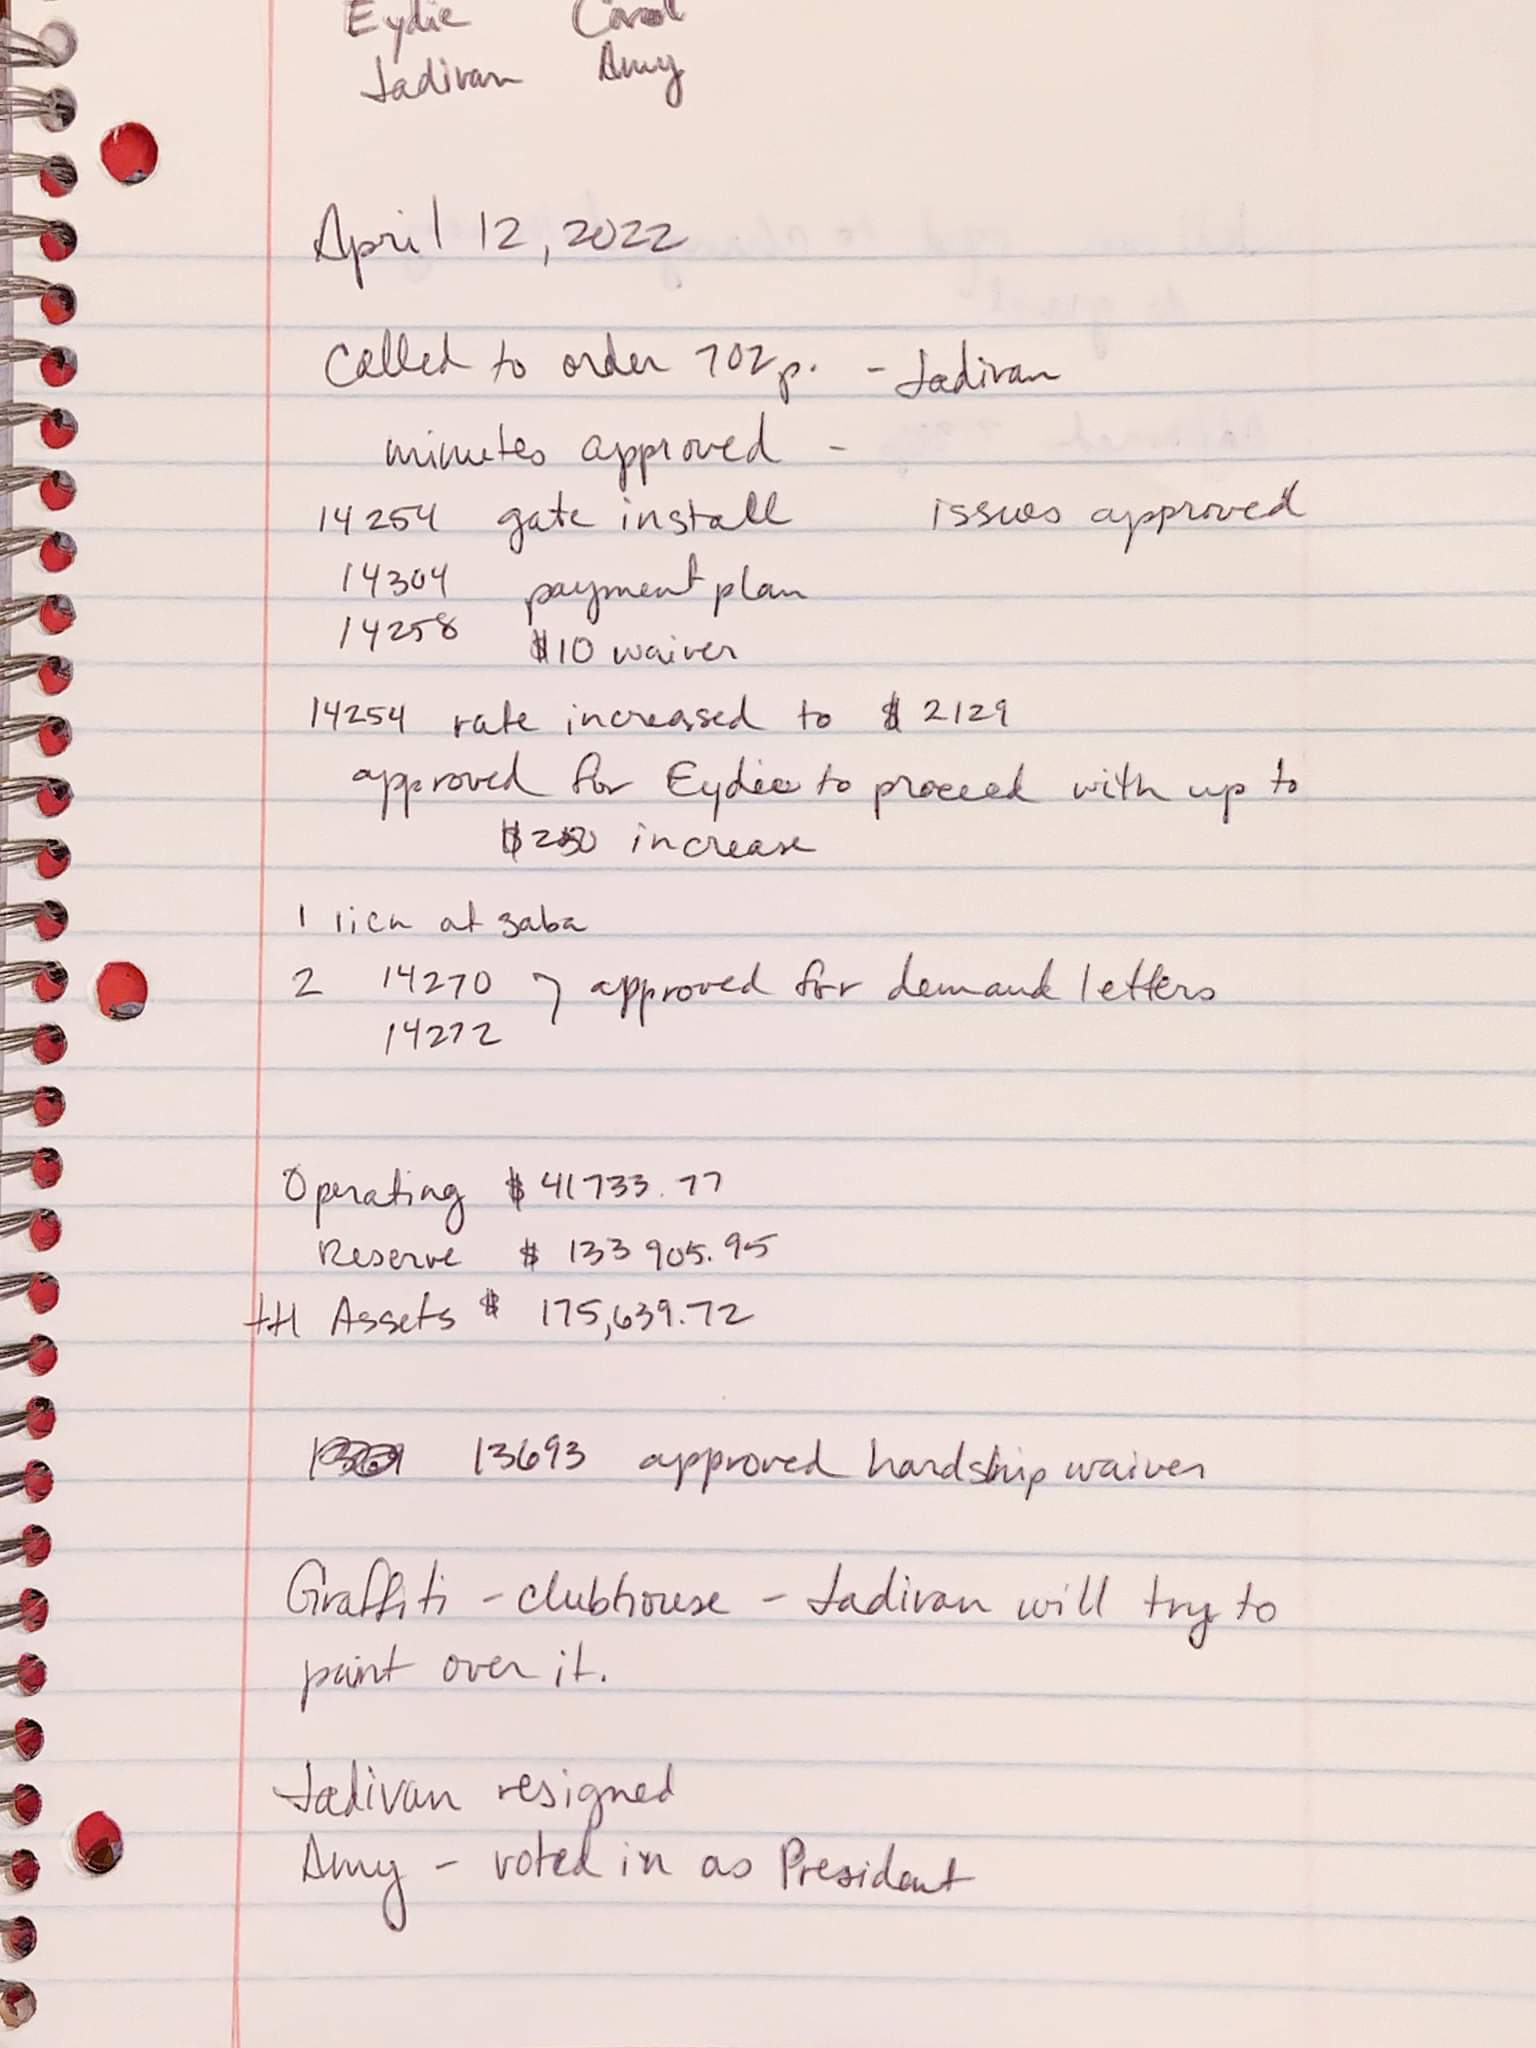 Eydie Carol
Jadivan Amy
April 12, 2022
Called to order 702p. - Jadivan
minutes approved -
14254 gate install issues approved
14304 payment plan
14258 $10 waiver
14254 rate increased to $2129
approved for Eydie to proceed with up to
$250 increase
1 lien at zaba
2 14270 } approved for demand letters
14272
Operating $41733.77
Reserve $133905.95
ttl Assets $175,639.72
13693 approved hardship waiver
Graffiti - clubhouse - Jadivan will try to
paint over it.
Jadivan resigned
Amy - voted in as President